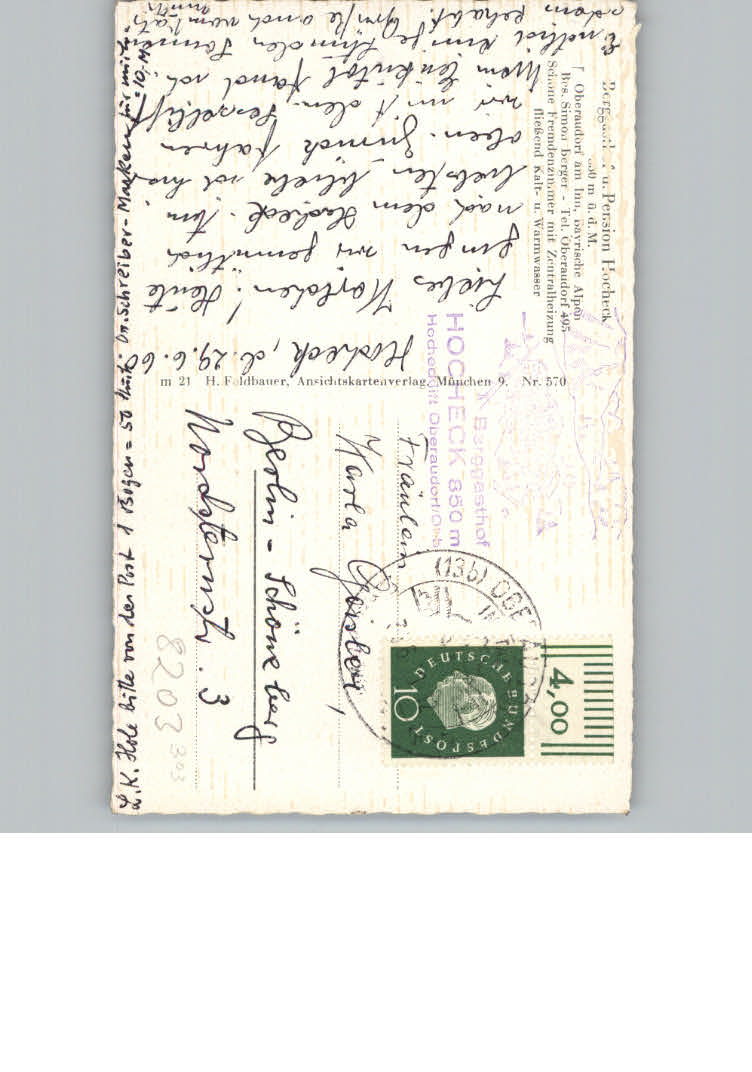 Berggasthof u. Pension Hocheck
850 m ü. d. M.
Oberaudorf am Inn, bayrische Alpen
Bes. Simon Berger - Tel. Oberaudorf 495
Schöne Fremdenzimmer mit Zentralheizung
fließend Kalt- u. Warmwasser
Hocheck, d. 29.6.60
Liebes Karlchen! Heute
gingen wir gemütlich
nach dem Hocheck. Am
liebsten bliebe ich hier
oben. Zurück fahren
wir mit dem Sessellift.
Im Inntal fand ich
Grüße auch von
L.K. Hole bitte von der Post 1 Bogen = 50 Stück Dr. Schreiber-Marken für mich.
= 10,- M
m 21 H. Feldbauer, Ansichtskartenverlag, München 9. Nr. 570
Berggasthof
HOCHECK 850 m
Hocheck Oberaudorf/Obb
(13b) OBERAUDORF
DEUTSCHE BUNDESPOST
10
4,00
Fräulein
Karla
Berlin-Schöneberg
Nordsternstr. 3
8203
303